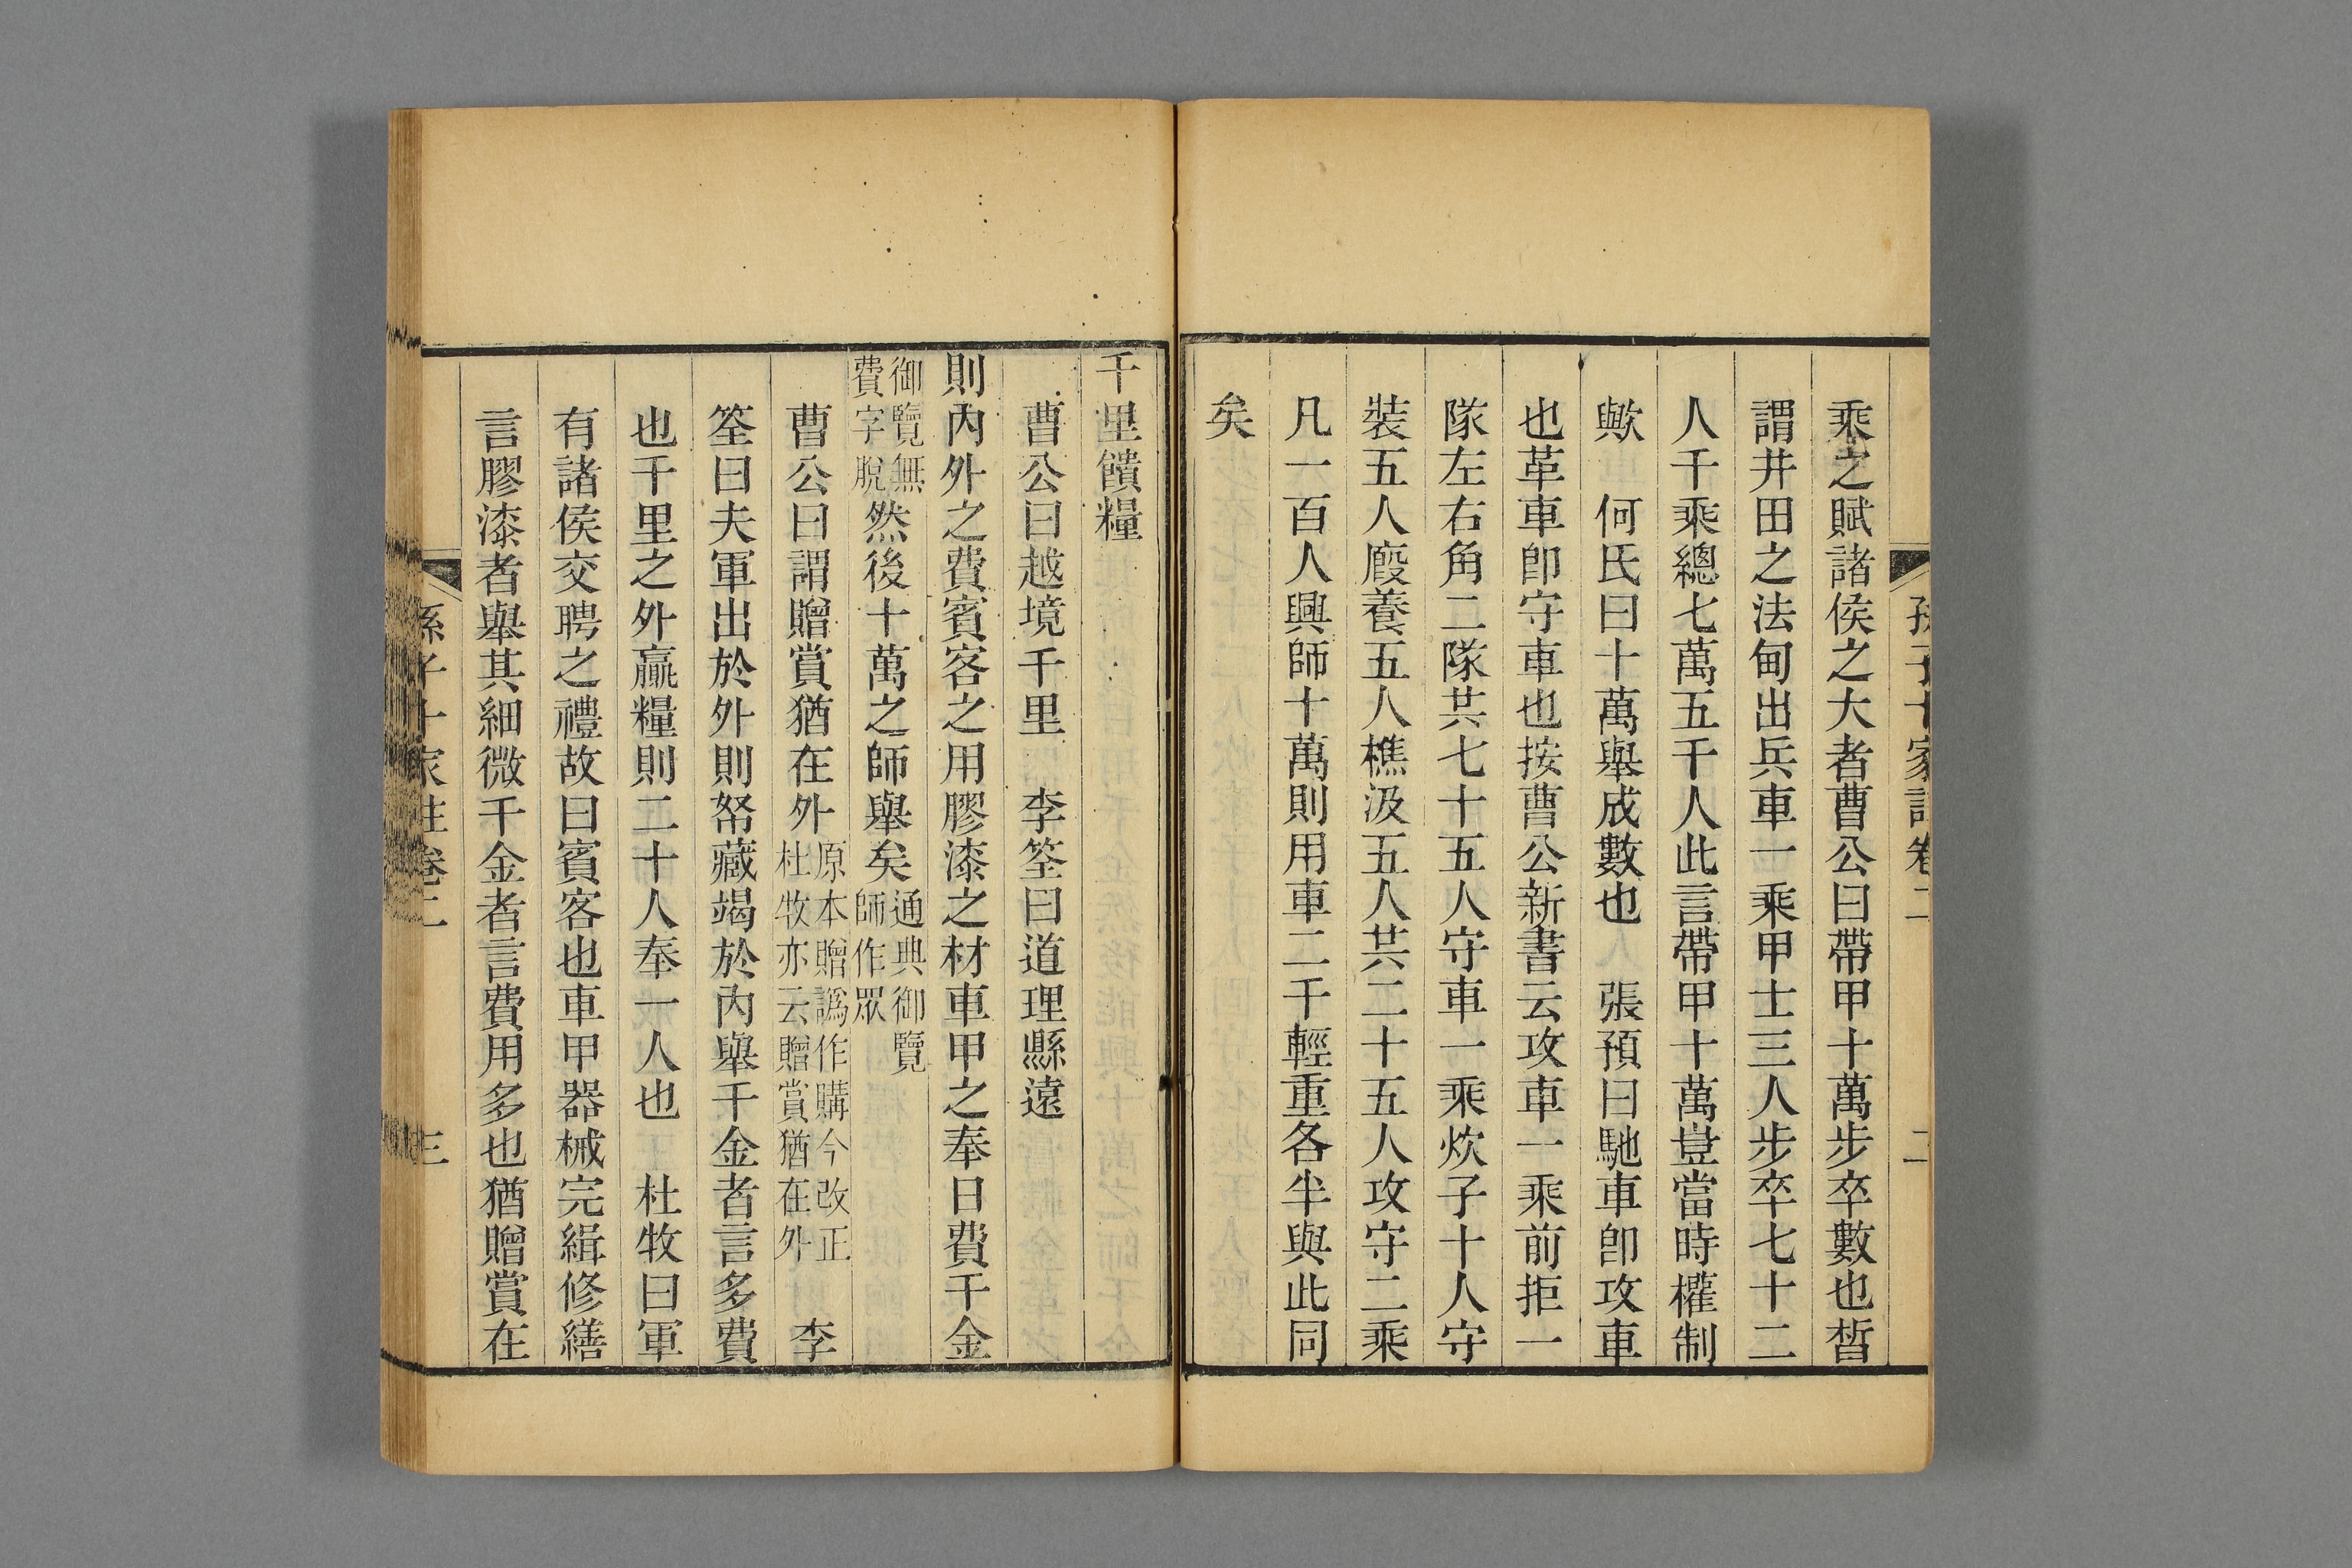 孫子十家註卷二
二
乘之賦諸侯之大者曹公曰帶甲十萬步卒數也皙
謂井田之法甸出兵車一乘甲士三人步卒七十二
人千乘總七萬五千人此言帶甲十萬豈當時權制
歟　何氏曰十萬舉成數也　張預曰馳車卽攻車
也革車卽守車也按曹公新書云攻車一乘前拒一
隊左右角二隊共七十五人守車一乘炊子十人守
裝五人廄養五人樵汲五人共二十五人攻守二乘
凡一百人興師十萬則用車二千輕重各半與此同
矣
千里饋糧
曹公曰越境千里　李筌曰道理縣遠
則內外之費賓客之用膠漆之材車甲之奉日費千金
御覽無
費字脫
然後十萬之師舉矣
通典御覽
師作眾
曹公曰謂贈賞猶在外
原本贈譌作購今改正
杜牧亦云贈賞猶在外
李
筌曰夫軍出於外則帑藏竭於內舉千金者言多費
也千里之外贏糧則二十人奉一人也　杜牧曰軍
有諸侯交聘之禮故曰賓客也車甲器械完緝修繕
言膠漆者舉其細微千金者言費用多也猶贈賞在
孫子十家註卷二
三